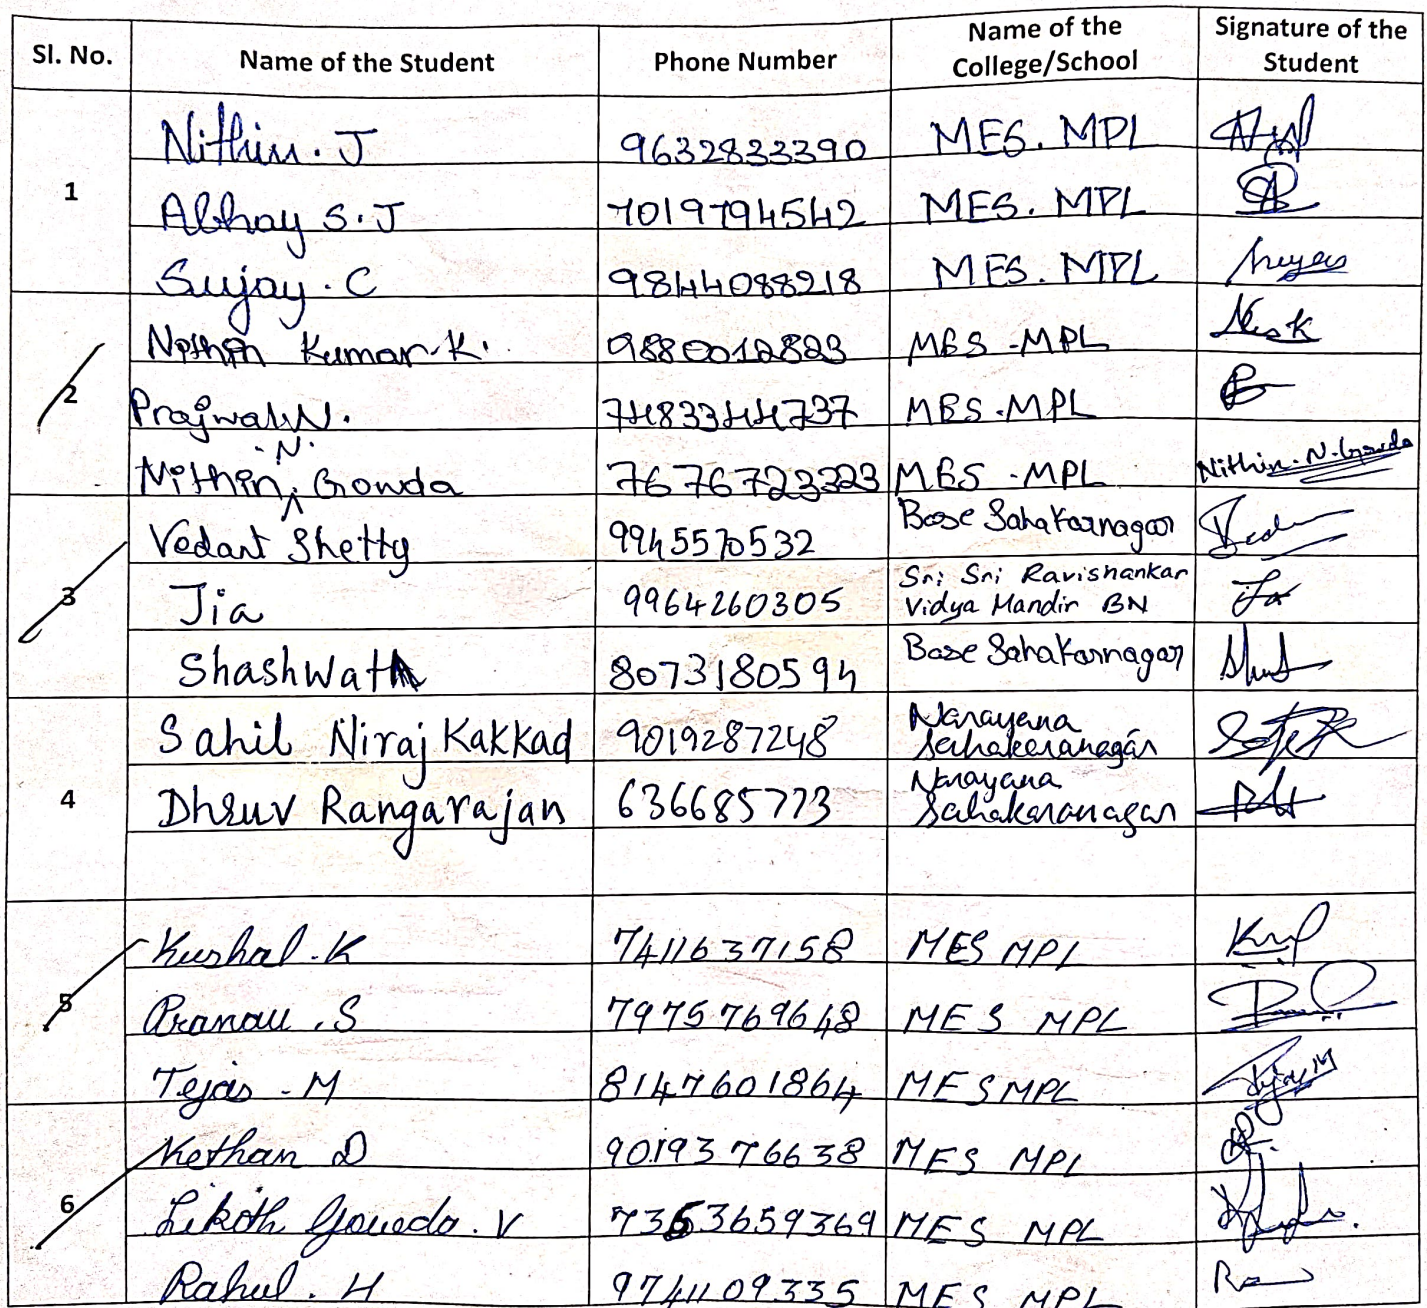 Sl. No. Name of the Student Phone Number Name of the College/School Signature of the Student
1
Nithin. J 9632833390 MES. MPL
Abhay S. J 7019794542 MES. MPL
Sujay. C 9844088218 MES. MPL
2
Nithin Kumar. K. 9880012823 MES -MPL
Prajwal N. 7483344737 MES .MPL
Nithin .N. Gowda 7676723323 MES -MPL Nithin. N. Gowda
3
Vedant Shetty 9945570532 Base Sahakarnagar
Jia 9964260305 Sri Sri Ravishankar Vidya Mandir BN
Shashwath 8073180594 Base Sahakarnagar
4
Sahil Niraj Kakkad 9019287248 Narayana Sahakaranagar
Dhruv Rangarajan 636685773 Narayana Sahakaranagar
5
Kushal. K 7411637158 MES MPL
Pranav .S 7975769648 MES MPL
Tejas - M 8147601864 MES MPL
6
Kethan D 9019376638 MES MPL
Likith Gowda. V 7353659369 MES MPL
Rahul. H 9741109335 MES MPL